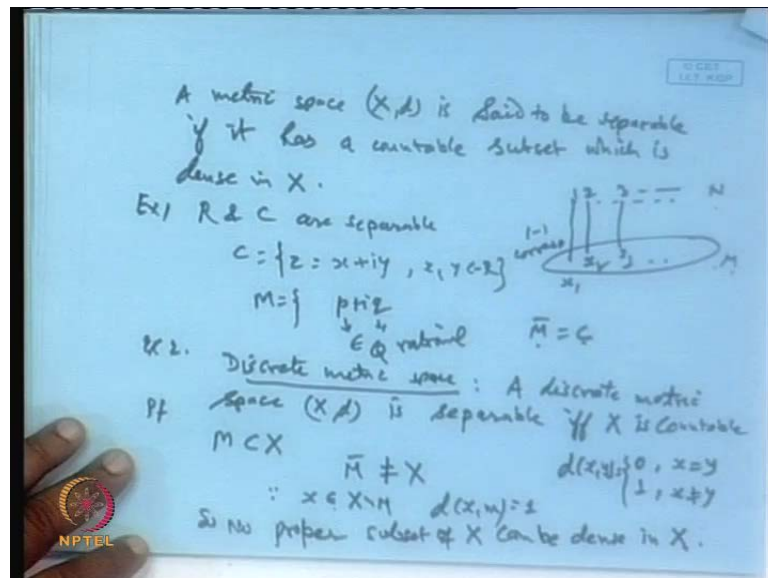 © CET
I.I.T. KGP
A metric space (X,d) is said to be separable
if it has a countable subset which is
dense in X.
Ex1 R & C are separable
1 2 3 - - - N
1-1
C = {z = x+iy, x, y ∈ R}
x₁ x₂ x₃ .. M
M = { p+iq
∈ Q rational M̄ = C
Ex 2. Discrete metric space : A discrete metric
Pf space (X,d) is separable iff X is countable
M ⊂ X
M̄ ≠ X d(x,y) = { 0, x=y
1, x≠y
∵ x ∈ X\M d(x,m)=1
So No proper subset of X can be dense in X.
NPTEL